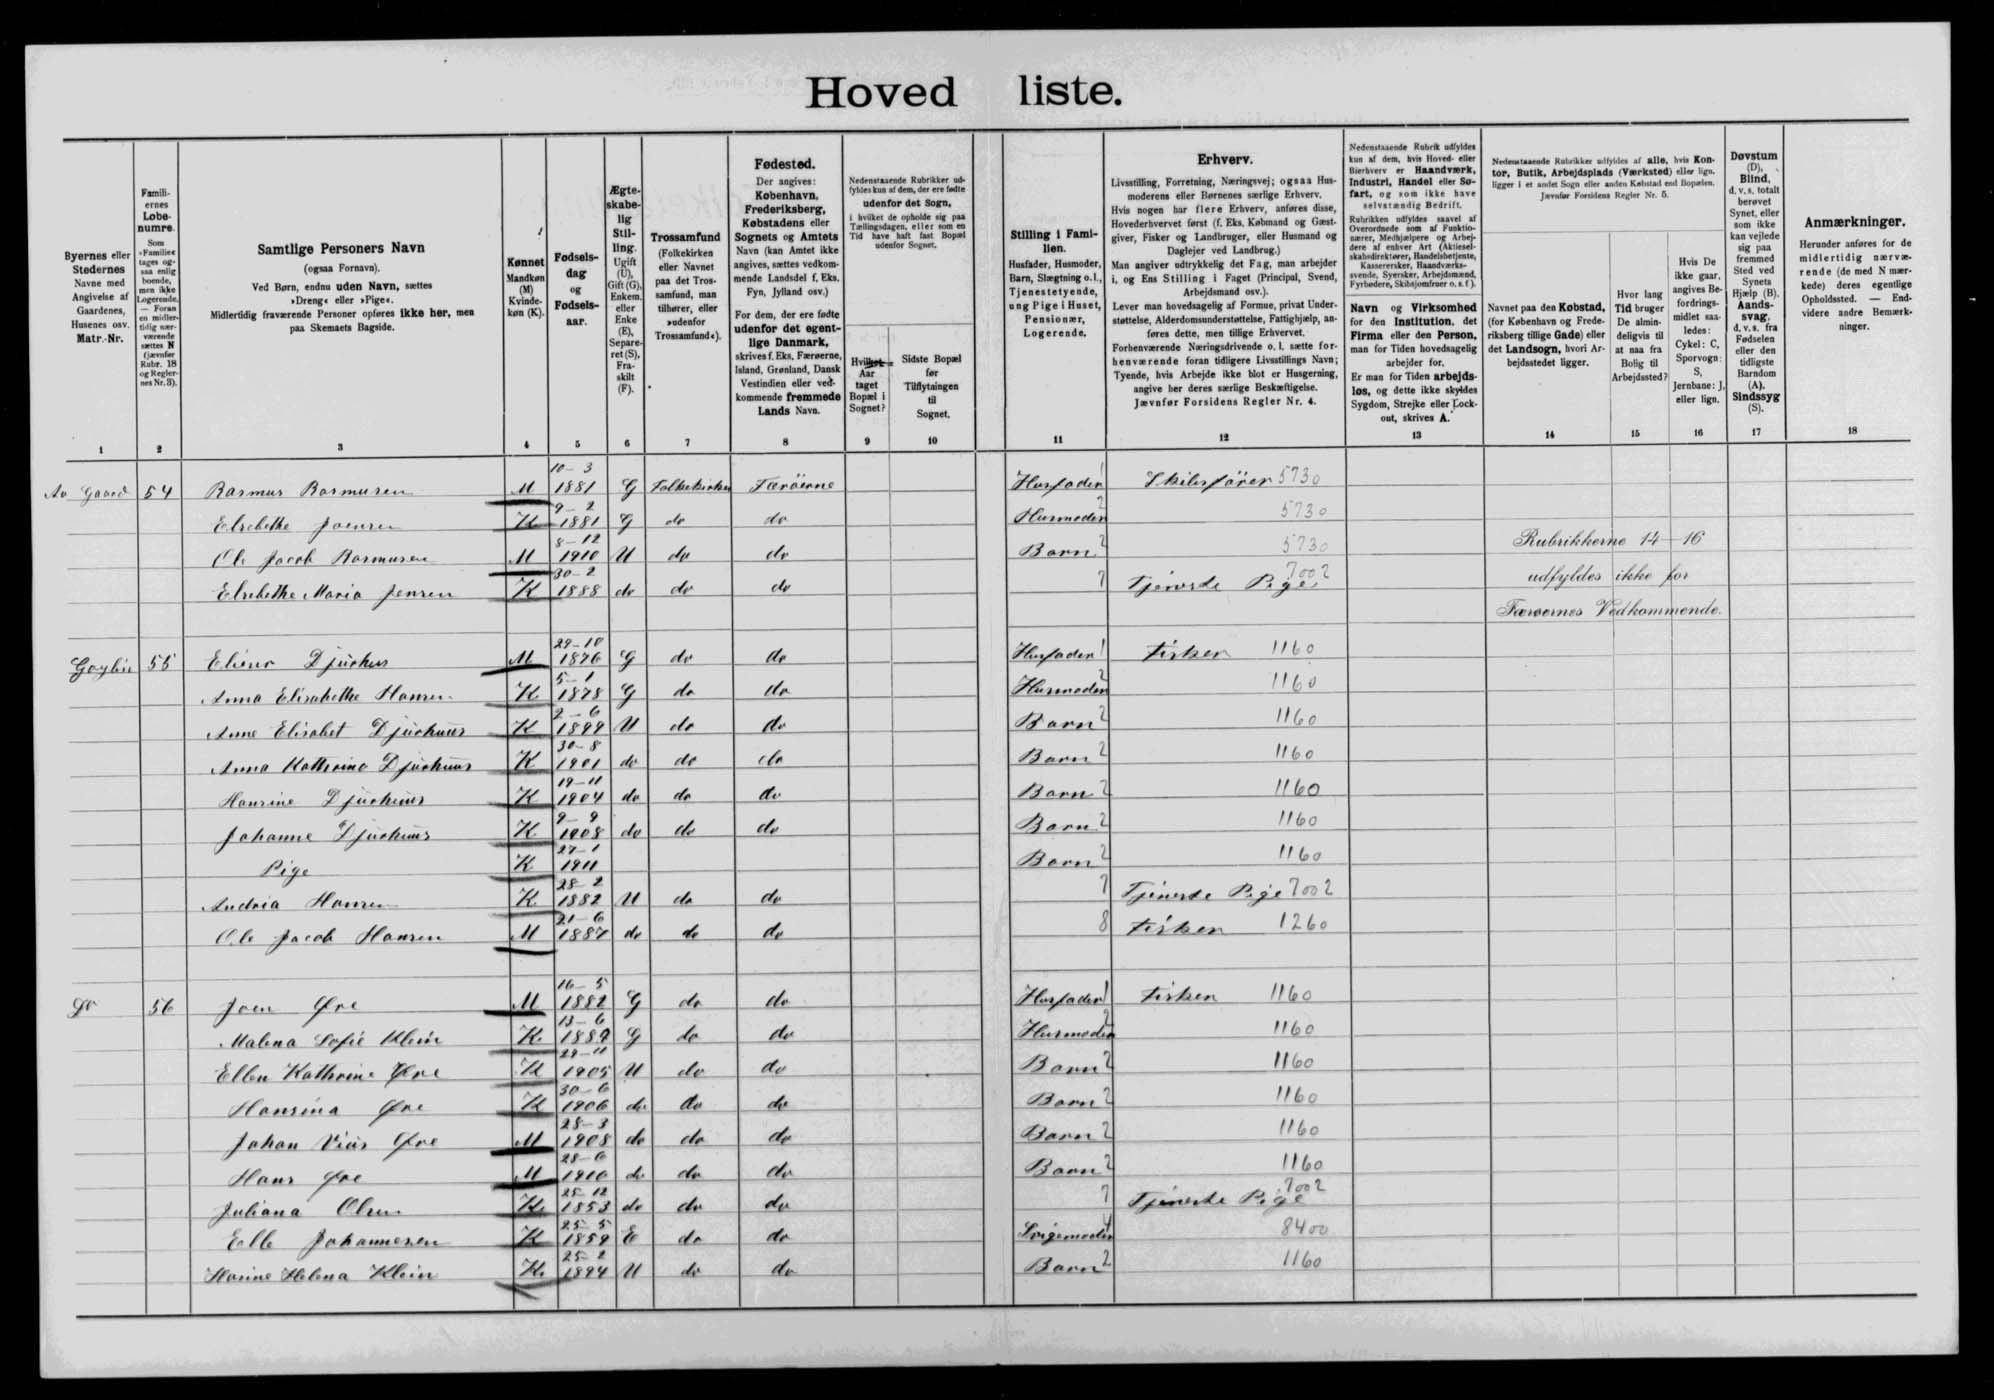 Hoved liste.
Byernes eller
Stedernes
Navne med
Angivelse af
Gaardenes,
Husenes osv.
Matr.-Nr.
Famili-
ernes
Løbe-
numre.
Som
»Familie«
tages og-
saa enlig
boende,
men ikke
Logerende.
— Foran
en midler-
tidig nær-
værende
sættes N
(jævnfør
Rubr. 18
og Regler-
nes Nr. 3).
Samtlige Personers Navn
(ogsaa Fornavn).
Ved Børn, endnu uden Navn, sættes
»Dreng« eller »Pige«.
Midlertidig fraværende Personer opføres ikke her, men
paa Skemaets Bagside.
Kønnet
Mandkøn
(M)
Kvinde-
køn (K).
Fødsels-
dag
og
Fødsels-
aar.
Ægte-
skabe-
lig
Stil-
ling.
Ugift
(U),
Gift (G),
Enkem.
eller
Enke
(E),
Separe-
ret (S),
Fra-
skilt
(F).
Trossamfund
(Folkekirken
eller Navnet
paa det Tros-
samfund, man
tilhører, eller
»udenfor
Trossamfund«).
Fødested.
Der angives:
København,
Frederiksberg,
Købstadens eller
Sognets og Amtets
Navn (kan Amtet ikke
angives, sættes vedkom-
mende Landsdel f. Eks.
Fyn, Jylland osv.)
For dem, der ere fødte
udenfor det egent-
lige Danmark,
skrives f. Eks. Færøerne,
Island, Grønland, Dansk
Vestindien eller ved-
kommende fremmede
Lands Navn.
Nedenstaaende Rubrikker ud-
fyldes kun af dem, der ere fødte
udenfor det Sogn,
i hvilket de opholde sig paa
Tællingsdagen, eller som en
Tid have haft fast Bopæl
udenfor Sognet.
Hvilket
Aar
taget
Bopæl i
Sognet?
Sidste Bopæl
før
Tilflytningen
til
Sognet.
Stilling i Fami-
lien.
Husfader, Husmoder,
Barn, Slægtning o. l.,
Tjenestetyende,
ung Pige i Huset,
Pensionær,
Logerende.
Erhverv.
Livsstilling, Forretning, Næringsvej; ogsaa Hus-
moderens eller Børnenes særlige Erhverv.
Hvis nogen har flere Erhverv, anføres disse,
Hovederhvervet først (f. Eks. Købmand og Gæst-
giver, Fisker og Landbruger, eller Husmand og
Daglejer ved Landbrug.)
Man angiver udtrykkelig det Fag, man arbejder
i, og Ens Stilling i Faget (Principal, Svend,
Arbejdsmand osv.).
Lever man hovedsagelig af Formue, privat Under-
støttelse, Alderdomsunderstøttelse, Fattighjælp, an-
føres dette, men tillige Erhvervet.
Forhenværende Næringsdrivende o. l. sætte for-
henværende foran tidligere Livsstillings Navn;
Tyende, hvis Arbejde ikke blot er Husgerning,
angive her deres særlige Beskæftigelse.
Jævnfør Forsidens Regler Nr. 4.
Nedenstaaende Rubrik udfyldes
kun af dem, hvis Hoved- eller
Bierhverv er Haandværk,
Industri, Handel eller Sø-
fart, og som ikke have
selvstændig Bedrift.
Rubrikken udfyldes saavel af
Overordnede som af Funktio-
nærer, Medhjælpere og Arbej-
dere af enhver Art (Aktiesel-
skabsdirektører, Handelsbetjente,
Kasserersker, Haandværks-
svende, Syersker, Arbejdsmænd,
Fyrbødere, Skibsjomfruer o. s. f.).
Navn og Virksomhed
for den Institution, det
Firma eller den Person,
man for Tiden hovedsagelig
arbejder for.
Er man for Tiden arbejds-
løs, og dette ikke skyldes
Sygdom, Strejke eller Lock-
out, skrives A.
Nedenstaaende Rubrikker udfyldes af alle, hvis Kon-
tor, Butik, Arbejdsplads (Værksted) eller lign.
ligger i et andet Sogn eller anden Købstad end Bopælen.
Jævnfør Forsidens Regler Nr. 5.
Navnet paa den Købstad,
(for København og Frede-
riksberg tillige Gade) eller
det Landsogn, hvori Ar-
bejdsstedet ligger.
Hvor lang
Tid bruger
De almin-
deligvis til
at naa fra
Bolig til
Arbejdssted?
Hvis De
ikke gaar,
angives Be-
fordrings-
midlet saa-
ledes:
Cykel: C,
Sporvogn:
S,
Jernbane: J,
eller lign.
Døvstum
(D),
Blind,
d. v. s. totalt
berøvet
Synet, eller
som ikke
kan vejlede
sig paa
fremmed
Sted ved
Synets
Hjælp (B).
Aands-
svag,
d. v. s. fra
Fødselen
eller den
tidligste
Barndom
(A).
Sindssyg
(S).
Anmærkninger.
Herunder anføres for de
midlertidig nærvæ-
rende (de med N mær-
kede) deres egentlige
Opholdssted. — End-
videre andre Bemærk-
ninger.
1 2 3 4 5 6 7 8 9 10 11 12 13 14 15 16 17 18
Aa Gaard 54 Rasmus Rasmusen M 10-3 1881 G Folkekirken Færøerne Husfader 1 Skibsfører 5730
Elsebethe Joensen K 9-2 1881 G do do Husmoder 2 5730
Ole Jacob Rasmusen M 8-12 1910 U do do Barn 2 5730 Rubrikkerne 14-16
Elsebethe Maria Jensen K 30-2 1888 do do do 7 Tjeneste Pige 7002 udfyldes ikke for
Færøernes Vedkommende.
55 M 29-10 1876 G do do Husfader 1 Fisker 1160
Anna Elisabethe Hansen K 5-1 1878 G do do Husmoder 2 1160
Anne Elisabet Djurhuus K 2-6 1899 U do do Barn 2 1160
Anna Kathrine Djurhuus K 30-8 1901 do do do Barn 2 1160
Hansine Djurhuus K 19-11 1904 do do do Barn 2 1160
Johanne Djurhuus K 9-9 1908 do do do Barn 2 1160
Pige K 27-1 1911 Barn 2 1160
Andria Hansen K 28-2 1882 U do do 7 Tjeneste Pige 7002
Ole Jacob Hansen M 21-6 1887 do do do 8 Fisker 1260
Do 56 Joen Øre M 16-5 1882 G do do Husfader 1 Fisker 1160
Malena Sofie Klein K 13-6 1889 G do do Husmoder 2 1160
Ellen Kathrine Øre K 29-11 1905 U do do Barn 2 1160
Hansina Øre K 30-6 1906 do do do Barn 2 1160
Johan Øre M 28-3 1908 do do do Barn 2 1160
Hans Øre M 28-6 1910 do do do Barn 2 1160
Juliana Olsen K 25-12 1853 do do do 7 Tjeneste Pige 7002
Elle Johannesen K 25-5 1859 E do do 4 8400
Helena Klein K 25-2 1894 U do do Barn 2 1160